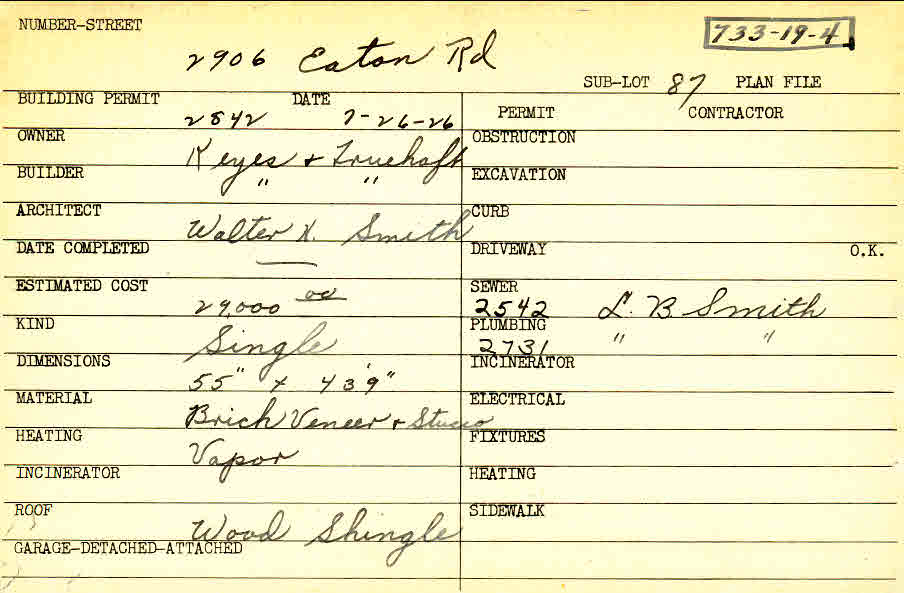 NUMBER-STREET
733-19-4
2906 Eaton Rd
SUB-LOT 87 PLAN FILE
BUILDING PERMIT DATE
2842 7-26-26
PERMIT CONTRACTOR
OWNER Keyes & Truehaft
OBSTRUCTION
BUILDER " "
EXCAVATION
ARCHITECT Walter H. Smith
CURB
DATE COMPLETED —
DRIVEWAY O.K.
ESTIMATED COST 29,000 00
SEWER 2542 L. B Smith
KIND Single
PLUMBING 2731 " "
DIMENSIONS 55" x 43'9"
INCINERATOR
MATERIAL Brick Veneer + Stucco
ELECTRICAL
HEATING Vapor
FIXTURES
INCINERATOR
HEATING
ROOF Wood Shingle
SIDEWALK
GARAGE-DETACHED-ATTACHED